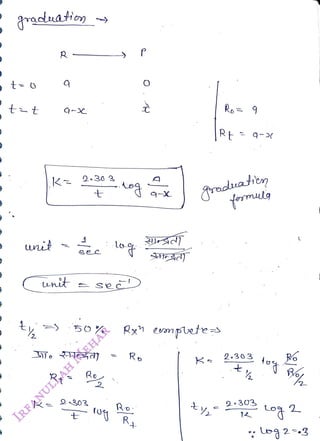 graduation →
R ⟶ P
t = 0 a 0
t = t a-x x
R₀ = a
Rt = a-x
K = 2.303/t log a/a-x
graduation formula
unit = 1/sec log सान्द्रता/सान्द्रता
unit = sec⁻¹
t½ ⇒ 50% Rxⁿ complete ⇒
प्रा० सान्द्रता = R₀
Rt = R₀/2
K = 2.303/t log R₀/Rt
K = 2.303/t½ log R₀/R₀/2
t½ = 2.303/K log 2
∵ log 2 = .3
IRFANULLAH MEHAR